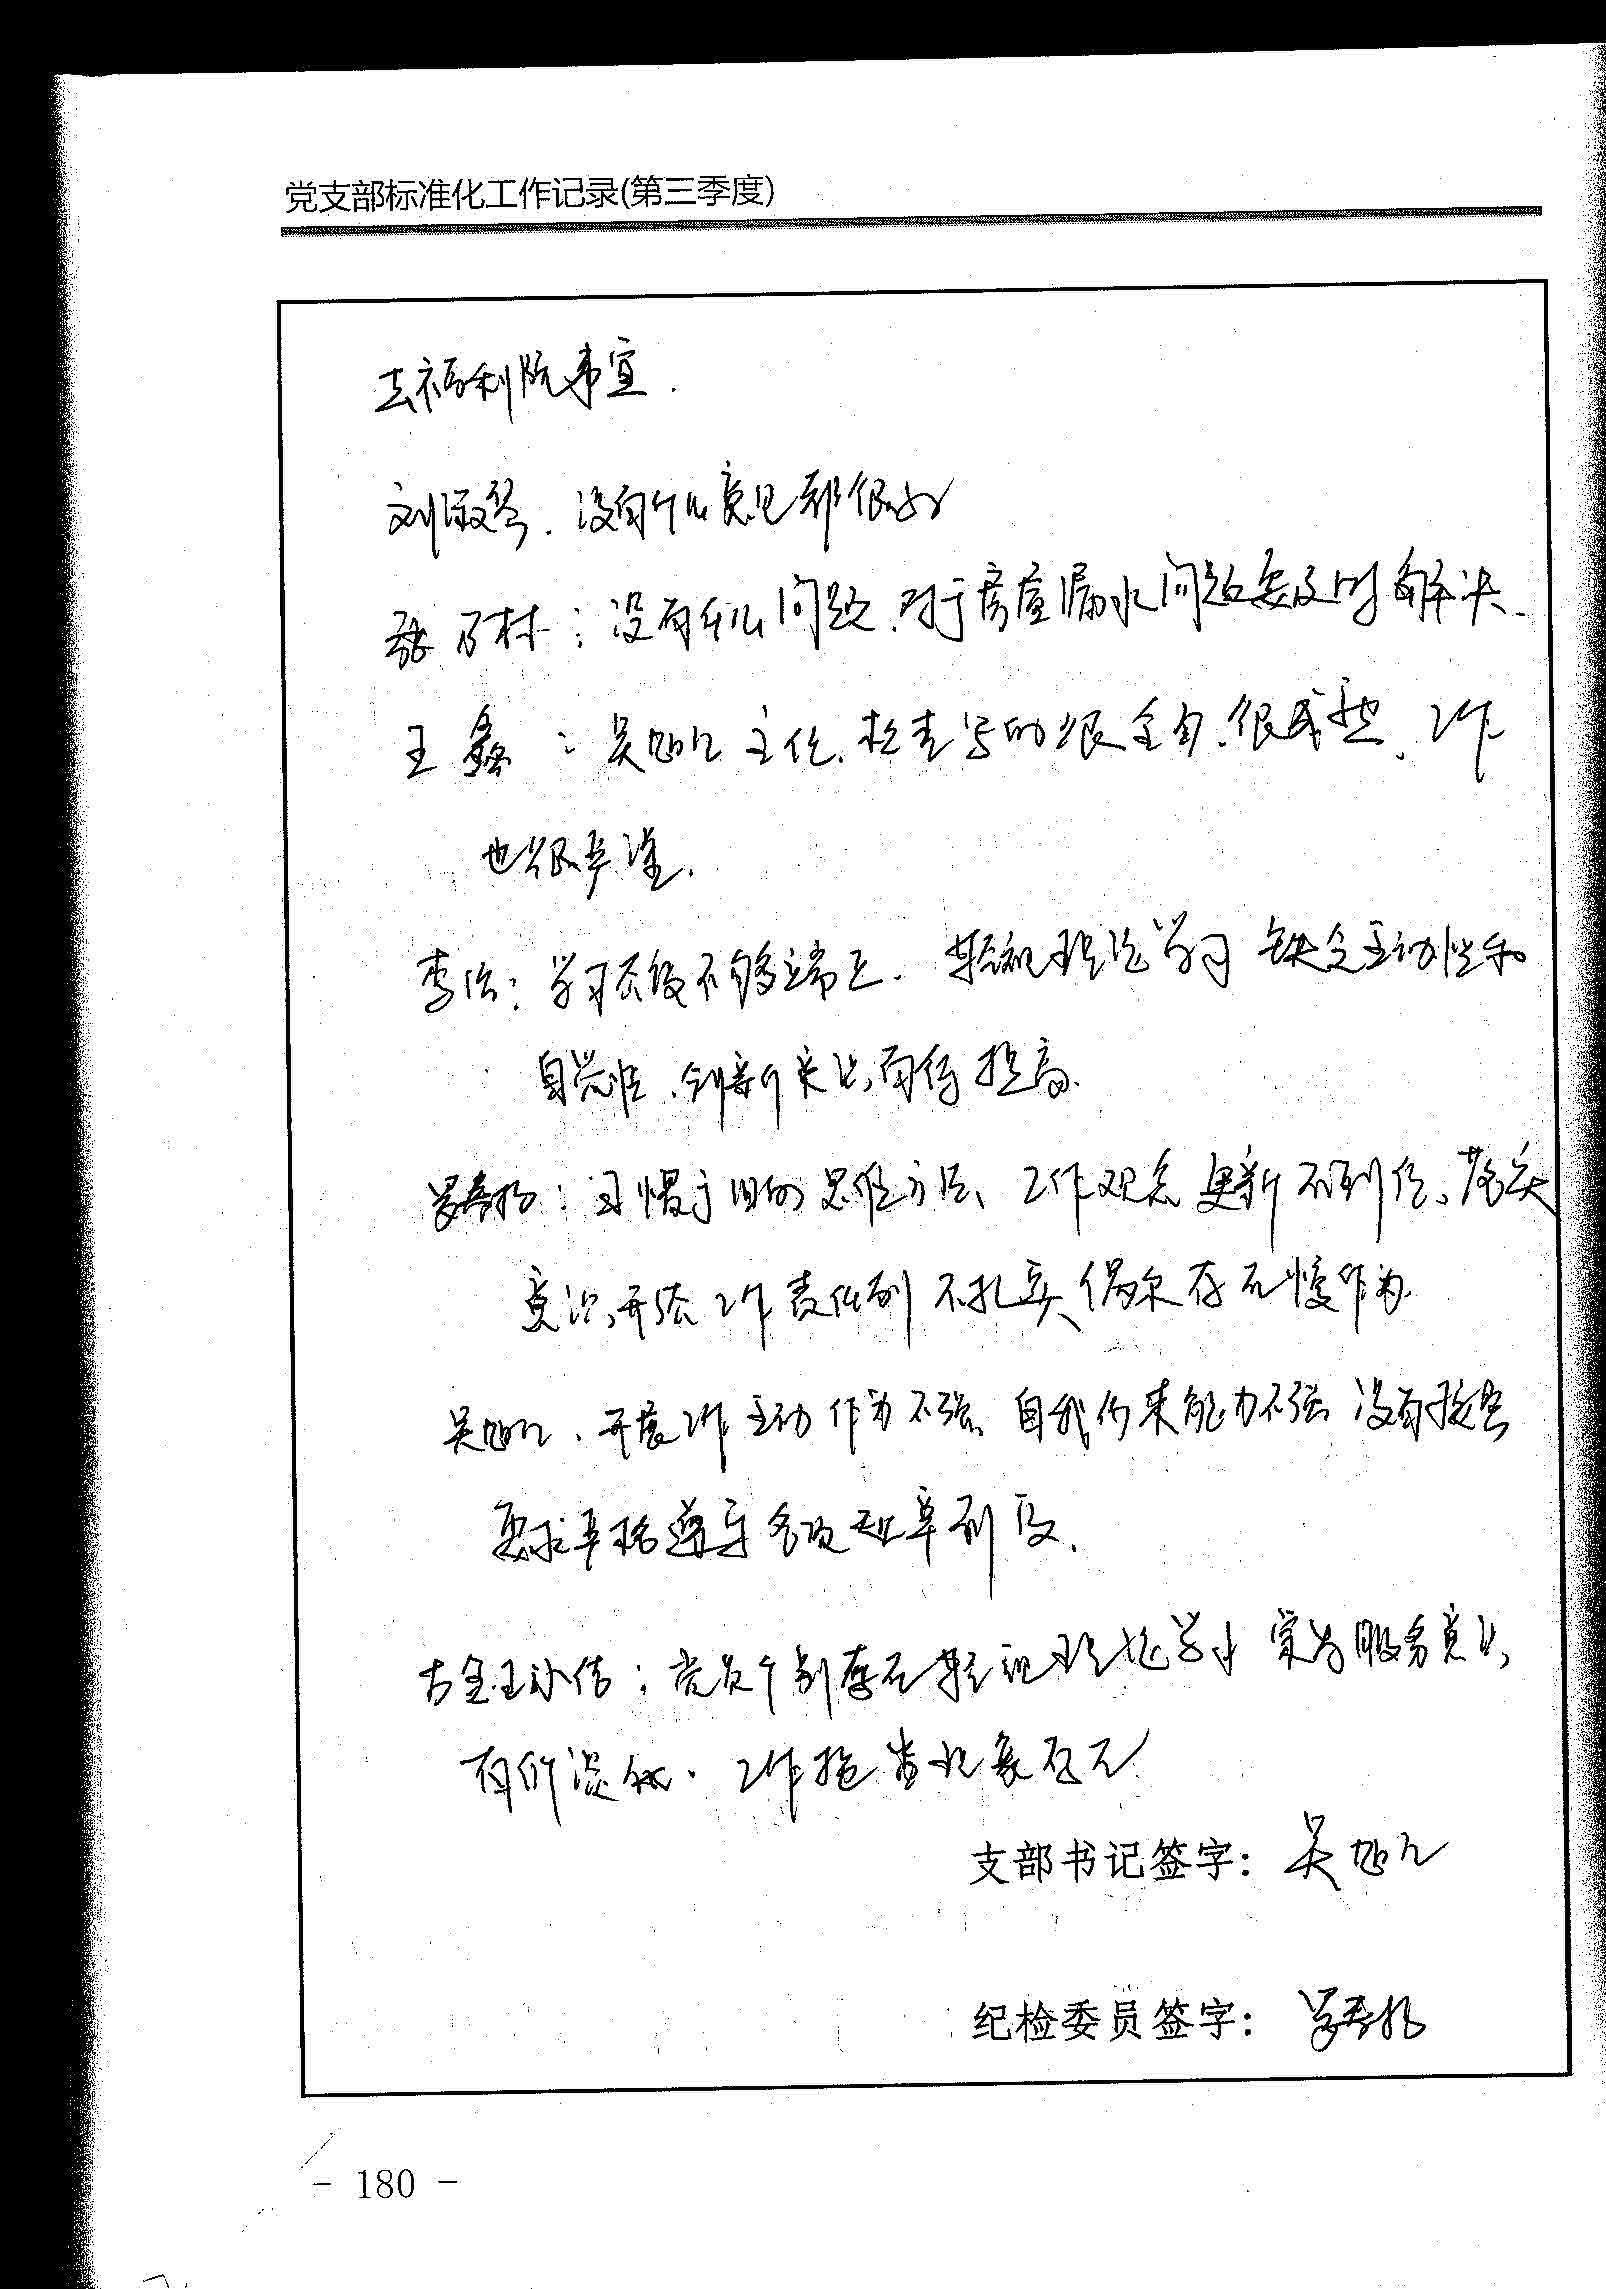 党支部标准化工作记录(第三季度)
去福利院事宜.
刘淑琴. 没有什么意见都很好
张乃林: 没有什么问题.对于房屋漏水问题要及时解决.
王鑫: 吴旭 主任.检查写的很全面.很成熟.工作
也很严谨.
李浩: 学习态度不够端正. 轻视理论学习 缺乏主动性和
自觉性.创新意识有待提高.
习惯于旧的思维方法、工作观念更新不到位、落实
意识,开展工作责任制不扎实 偶尔存在慢作为.
吴旭 . 开展工作主动作为不强、自我约束能力不强 没有按照
要求严格遵守各项规章制度.
: 党员个别存在轻视理论学习 宗旨服务意识,
有所淡化. 工作拖沓现象存在
支部书记签字: 吴旭
纪检委员签字:
- 180 -